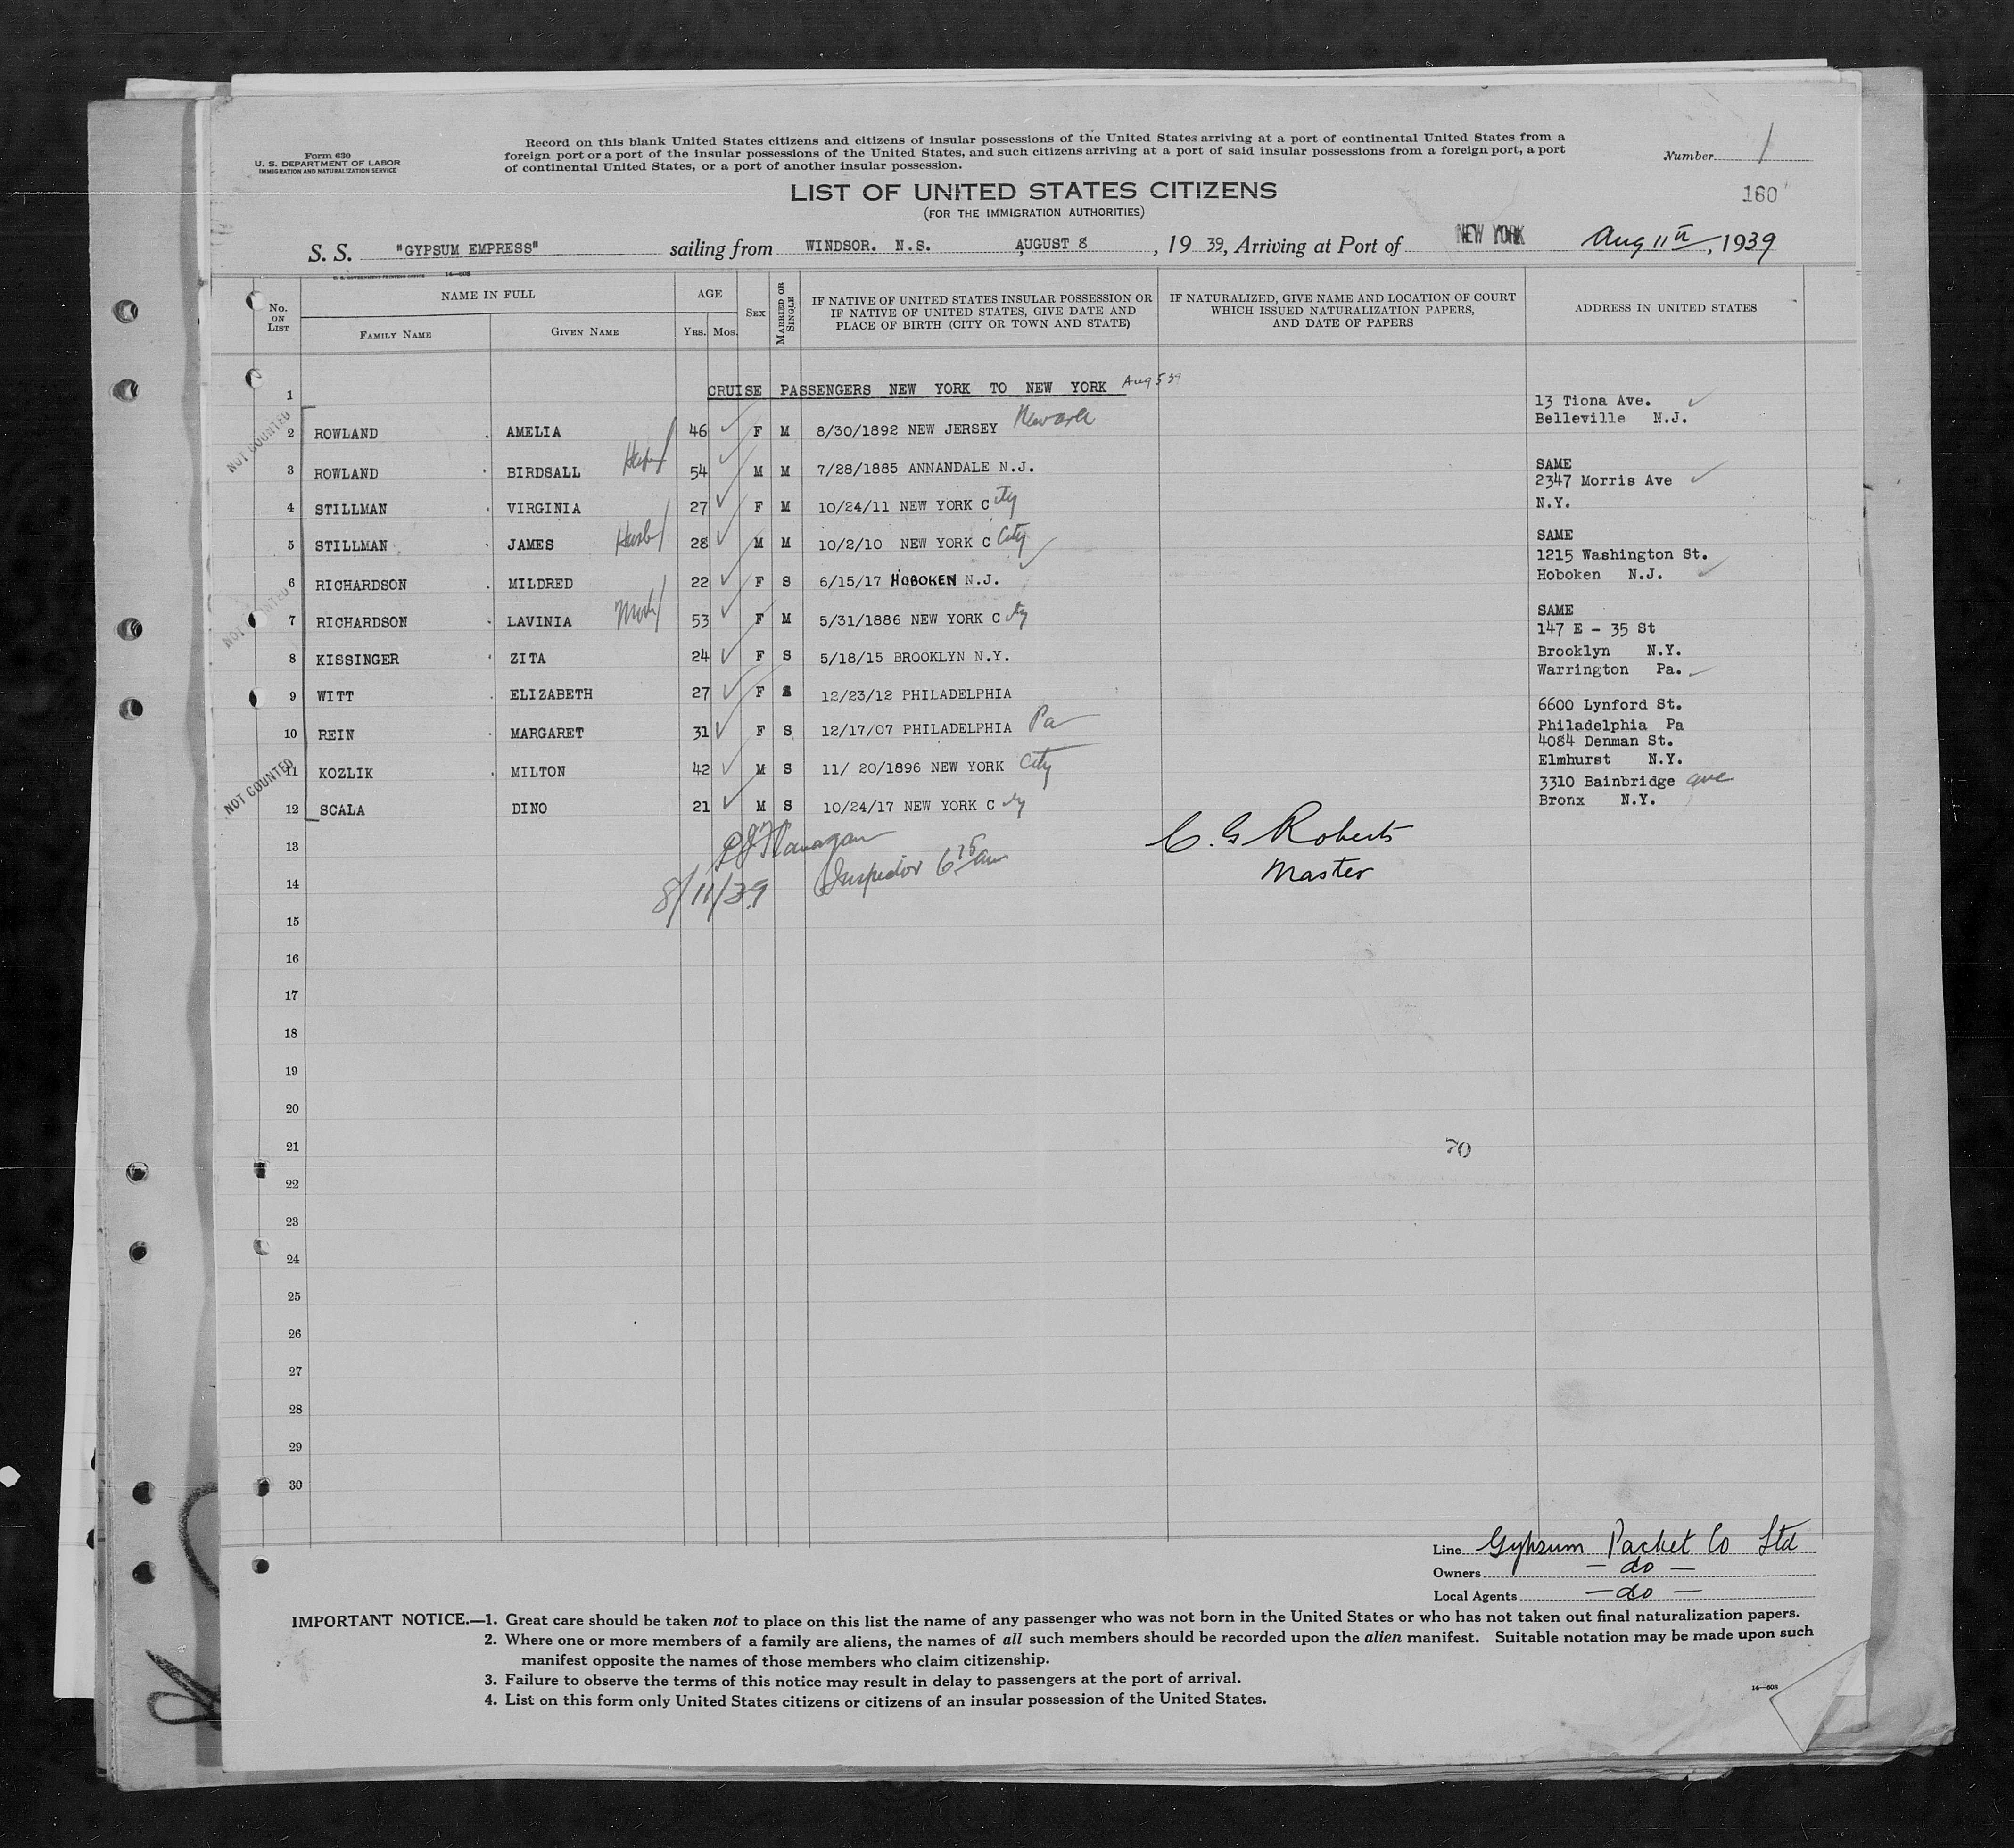 Form 630
U. S. DEPARTMENT OF LABOR
IMMIGRATION AND NATURALIZATION SERVICE
Record on this blank United States citizens and citizens of insular possessions of the United States arriving at a port of continental United States from a
foreign port or a port of the insular possessions of the United States, and such citizens arriving at a port of said insular possessions from a foreign port, a port
of continental United States, or a port of another insular possession.
Number 1
LIST OF UNITED STATES CITIZENS
(FOR THE IMMIGRATION AUTHORITIES)
160
S. S. "GYPSUM EMPRESS" sailing from WINDSOR. N.S. AUGUST 8, 19 39, Arriving at Port of NEW YORK Aug 11th, 1939
No. ON LIST
NAME IN FULL
FAMILY NAME GIVEN NAME
AGE
YRS. MOS.
SEX
MARRIED OR SINGLE
IF NATIVE OF UNITED STATES INSULAR POSSESSION OR
IF NATIVE OF UNITED STATES, GIVE DATE AND
PLACE OF BIRTH (CITY OR TOWN AND STATE)
IF NATURALIZED, GIVE NAME AND LOCATION OF COURT
WHICH ISSUED NATURALIZATION PAPERS,
AND DATE OF PAPERS
ADDRESS IN UNITED STATES
1 CRUISE PASSENGERS NEW YORK TO NEW YORK Aug 5 39
13 Tiona Ave.
NOT COUNTED
2 ROWLAND AMELIA 46 F M 8/30/1892 NEW JERSEY Newark Belleville N.J.
3 ROWLAND BIRDSALL 54 M M 7/28/1885 ANNANDALE N.J. SAME
2347 Morris Ave
4 STILLMAN VIRGINIA 27 F M 10/24/11 NEW YORK City N.Y.
5 STILLMAN JAMES Husb 28 M M 10/2/10 NEW YORK C City SAME
1215 Washington St.
6 RICHARDSON MILDRED 22 F S 6/15/17 HOBOKEN N.J. Hoboken N.J.
NOT COUNTED
7 RICHARDSON LAVINIA Moth 53 F M 5/31/1886 NEW YORK City SAME
147 E - 35 St
8 KISSINGER ZITA 24 F S 5/18/15 BROOKLYN N.Y. Brooklyn N.Y.
Warrington Pa.
9 WITT ELIZABETH 27 F S 12/23/12 PHILADELPHIA
6600 Lynford St.
10 REIN MARGARET 31 F S 12/17/07 PHILADELPHIA Pa Philadelphia Pa
4084 Denman St.
11 KOZLIK MILTON 42 M S 11/ 20/1896 NEW YORK City Elmhurst N.Y.
NOT COUNTED
3310 Bainbridge ave
12 SCALA DINO 21 M S 10/24/17 NEW YORK City Bronx N.Y.
13 Flanagan C. G Roberts
14 8/11/39 Inspector 6 15 am Master
15
16
17
18
19
20
21 70
22
23
24
25
26
27
28
29
30
Line Gypsum Packet Co Ltd
Owners — do —
Local Agents — do —
IMPORTANT NOTICE.—1. Great care should be taken not to place on this list the name of any passenger who was not born in the United States or who has not taken out final naturalization papers.
2. Where one or more members of a family are aliens, the names of all such members should be recorded upon the alien manifest. Suitable notation may be made upon such
manifest opposite the names of those members who claim citizenship.
3. Failure to observe the terms of this notice may result in delay to passengers at the port of arrival.
4. List on this form only United States citizens or citizens of an insular possession of the United States.
14—608